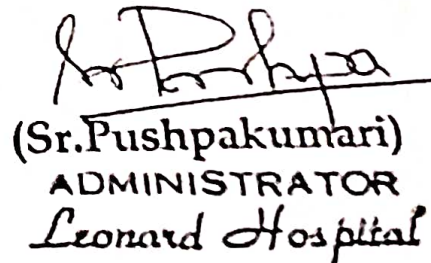 Sr Pushpa
(Sr.Pushpakumari)
ADMINISTRATOR
Leonard Hospital